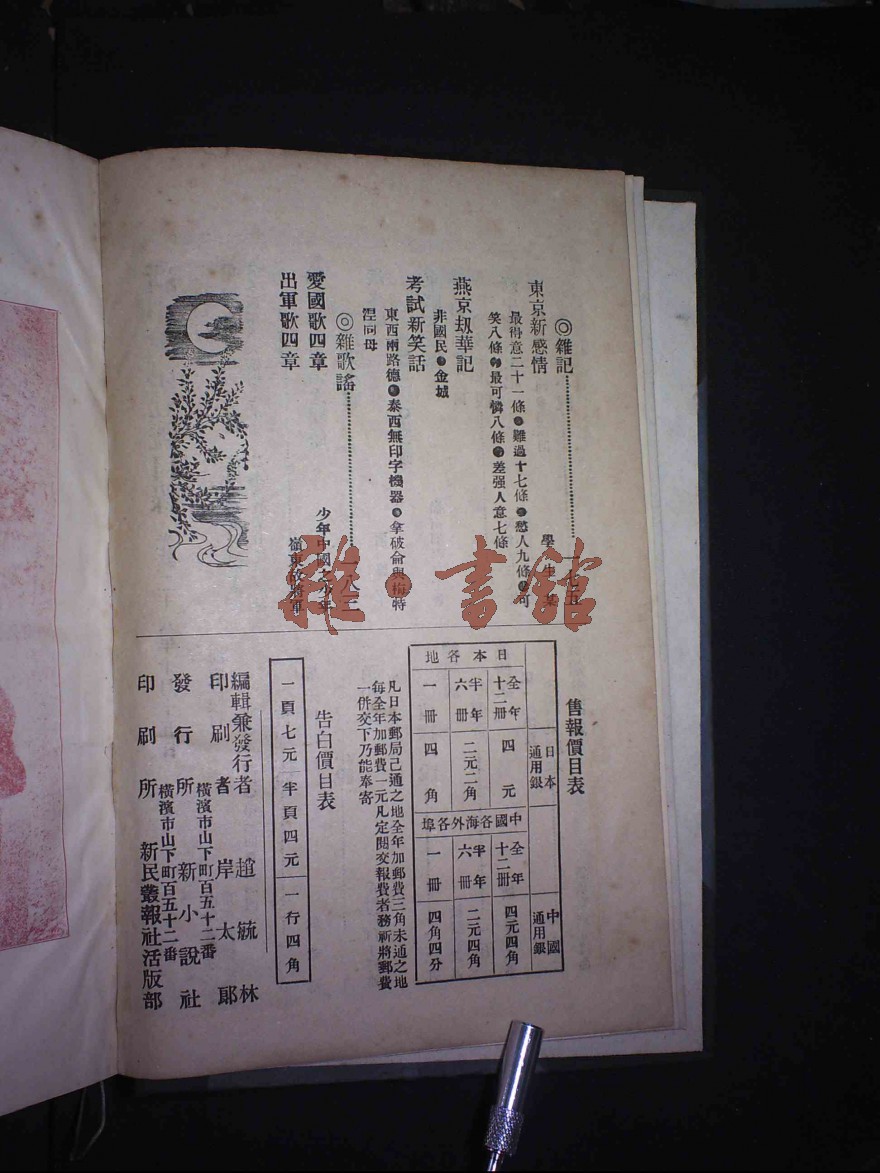 ◎雜記
東京新感情
學生某
最得意二十一條●難過十七條●愁人九條●可
笑八條●最可憐八條●差强人意七條
燕京刼華記
非國民●金城
考試新笑話
東西兩路德●泰西無印字機器●拿破侖與梅特
涅同母
◎雜歌謠
愛國歌四章
少年中國之少年
出軍歌四章
嶺東故將軍
售報價目表
日本通用銀
中國通用銀
日本各地
全年十二冊
四元
半年六冊
二元二角
一冊
四角
中國各海外各埠
全年十二冊
四元四角
半年六冊
二元四角
一冊
四角四分
凡日本郵局己通之地全年加郵費三角未通之地
每全年加郵費一元凡定閱交報費者務祈將郵費
一併交下乃能奉寄
告白價目表
一頁七元
半頁四元
一行四角
編輯兼發行者 趙毓林
印刷者 岸太郎
橫濱市山下町百五十二番
發行所 新小說社
橫濱市山下町百五十二番
印刷所 新民叢報社活版部
雜·書館